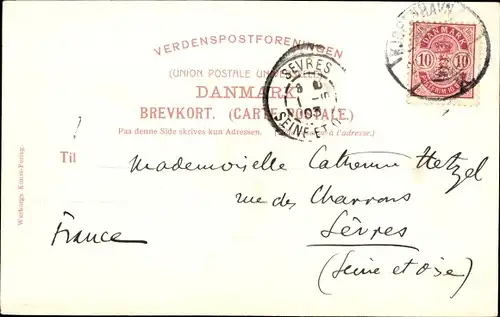 VERDENSPOSTFORENINGEN
(UNION POSTALE
DANMARK
BREVKORT. (CARTE POSTALE.)
Paa denne Side skrives kun Adressen. à l'adresse.)
KJØBENHAVN
DANMARK
10 10
SEVRES
03
SEINE ET
Til
Mademoiselle Catherine Hetzel
rue des Charrons
Sèvres
(Seine et Oise)
France
Warburgs Kunst-Forlag.